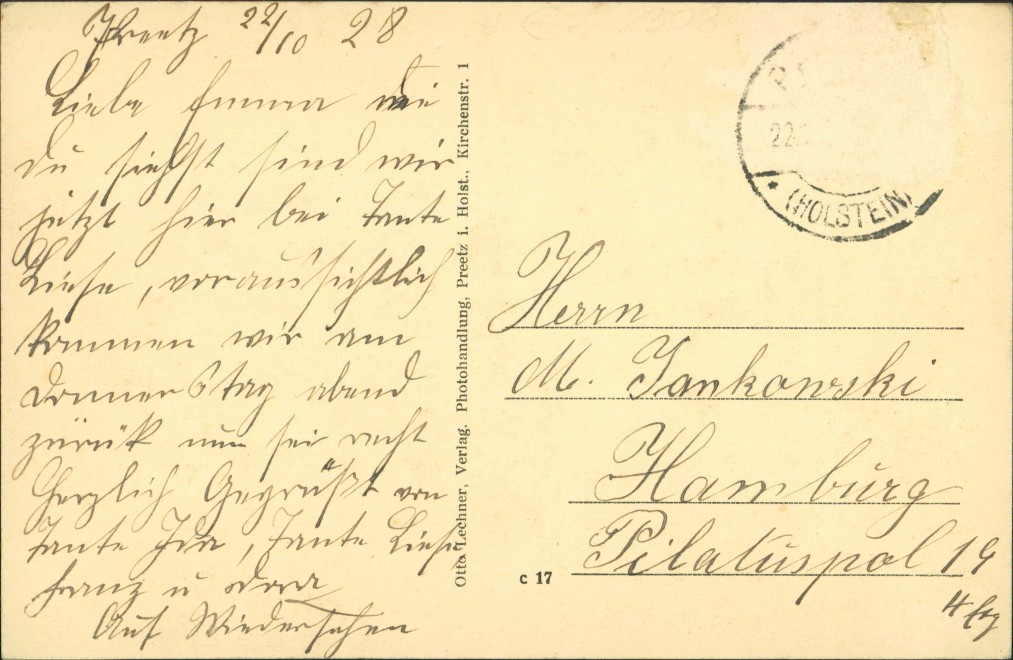 Preetz 22/10 28
Liebe Emma wie
du siehst sind wir
jetzt hier bei Tante
Liese, voraussichtlich
kommen wir am
Donnerstag abend
zurük nun sei recht
herzlich Gegrüßt von
Tante Ida, Tante Liese
Franz u Dora
Auf Wiedersehen
Otto Lechner, Verlag. Photohandlung, Preetz i. Holst., Kirchenstr. 1
c 17
22.
* (HOLSTEIN)
Herrn
M. Jankowski
Hamburg
Pilatuspol 19